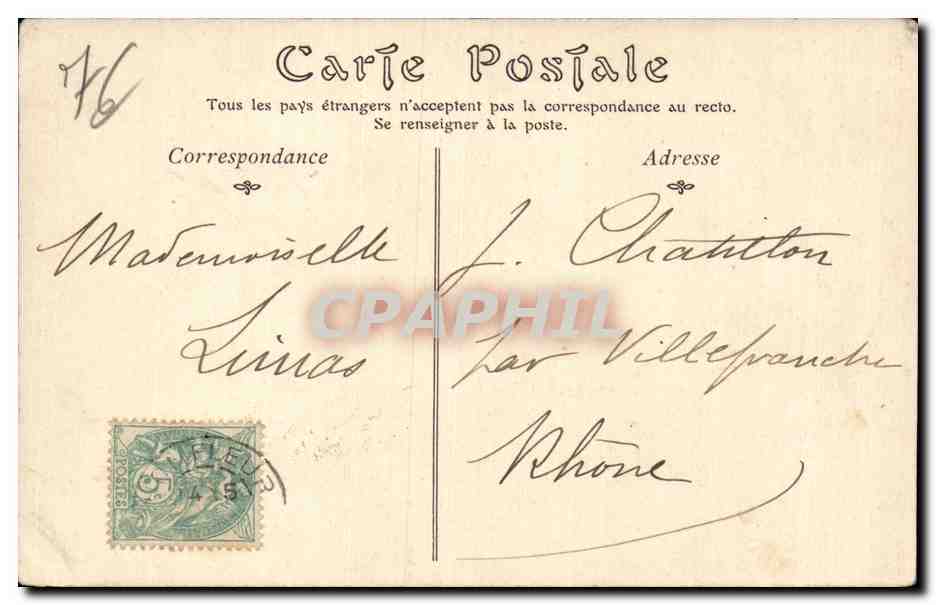 76
Carte Postale
Tous les pays étrangers n'acceptent pas la correspondance au recto.
Se renseigner à la poste.
Correspondance
Adresse
Mademoiselle J. Chatillon
Limas par Villefranche
Rhône
CPAPHIL
POSTES
5
FLEUR